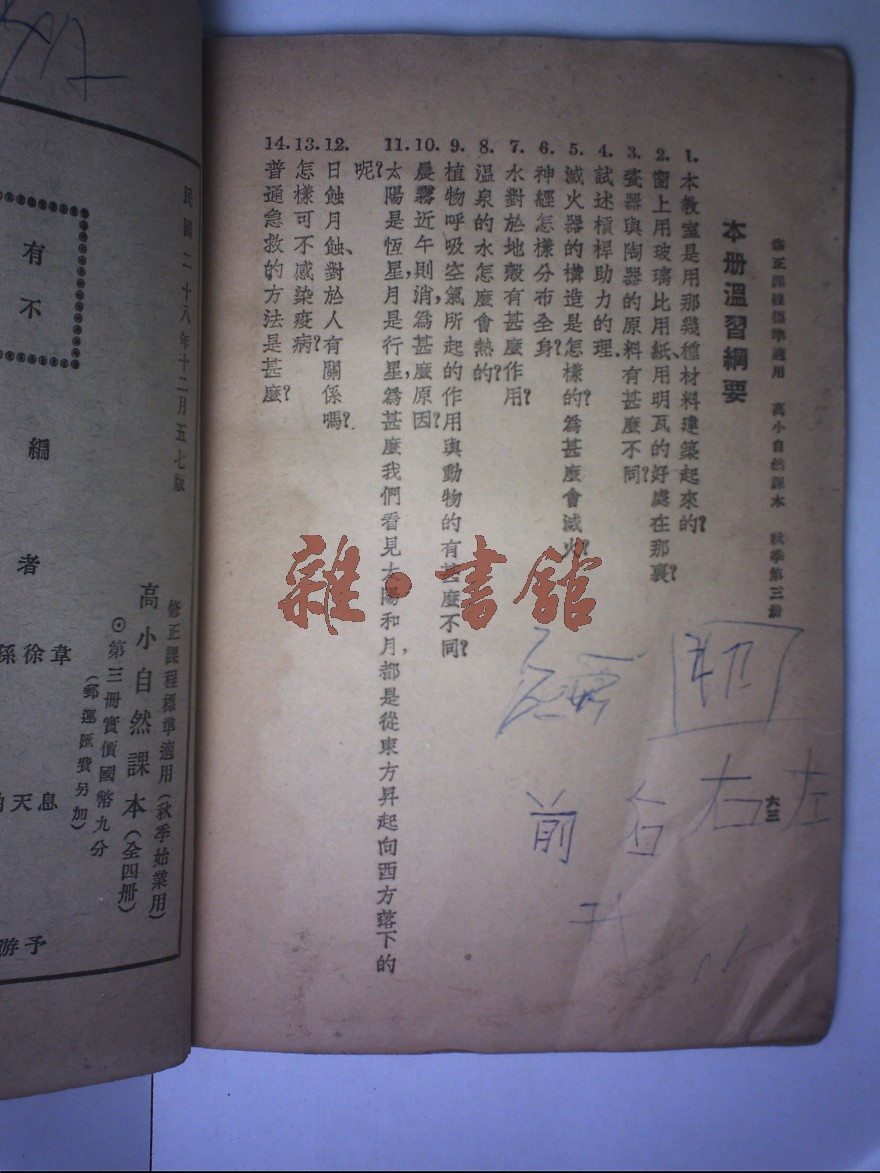 修正課程標準適用　高小自然課本　秋季第三册
本册溫習綱要
1. 本教室是用那幾種材料建築起來的?
2. 窗上用玻璃比用紙、用明瓦的好處在那裏?
3. 瓷器與陶器的原料有甚麼不同?
4. 試述槓桿助力的理.
5. 滅火器的構造是怎樣的?爲甚麼會滅火?
6. 神經怎樣分布全身?
7. 水對於地殼有甚麼作用?
8. 溫泉的水怎麼會熱的?
9. 植物呼吸空氣所起的作用與動物的有甚麼不同?
10. 晨霧近午則消,爲甚麼原因?
11. 太陽是恆星,月是行星,爲甚麼我們看見太陽和月,都是從東方昇起向西方落下的
呢?
12. 日蝕、月蝕對於人有關係嗎?
13. 怎樣可不感染疫病?
14. 普通急救的方法是甚麼?
六三
左
右
右
前
雜·書館
民國二十八年十二月五七版
修正課程標準適用(秋季始業用)
高小自然課本(全四册)
⊙第三册實價國幣九分
(郵運匯費另加)
有不
編
者
韋徐孫
息天
予